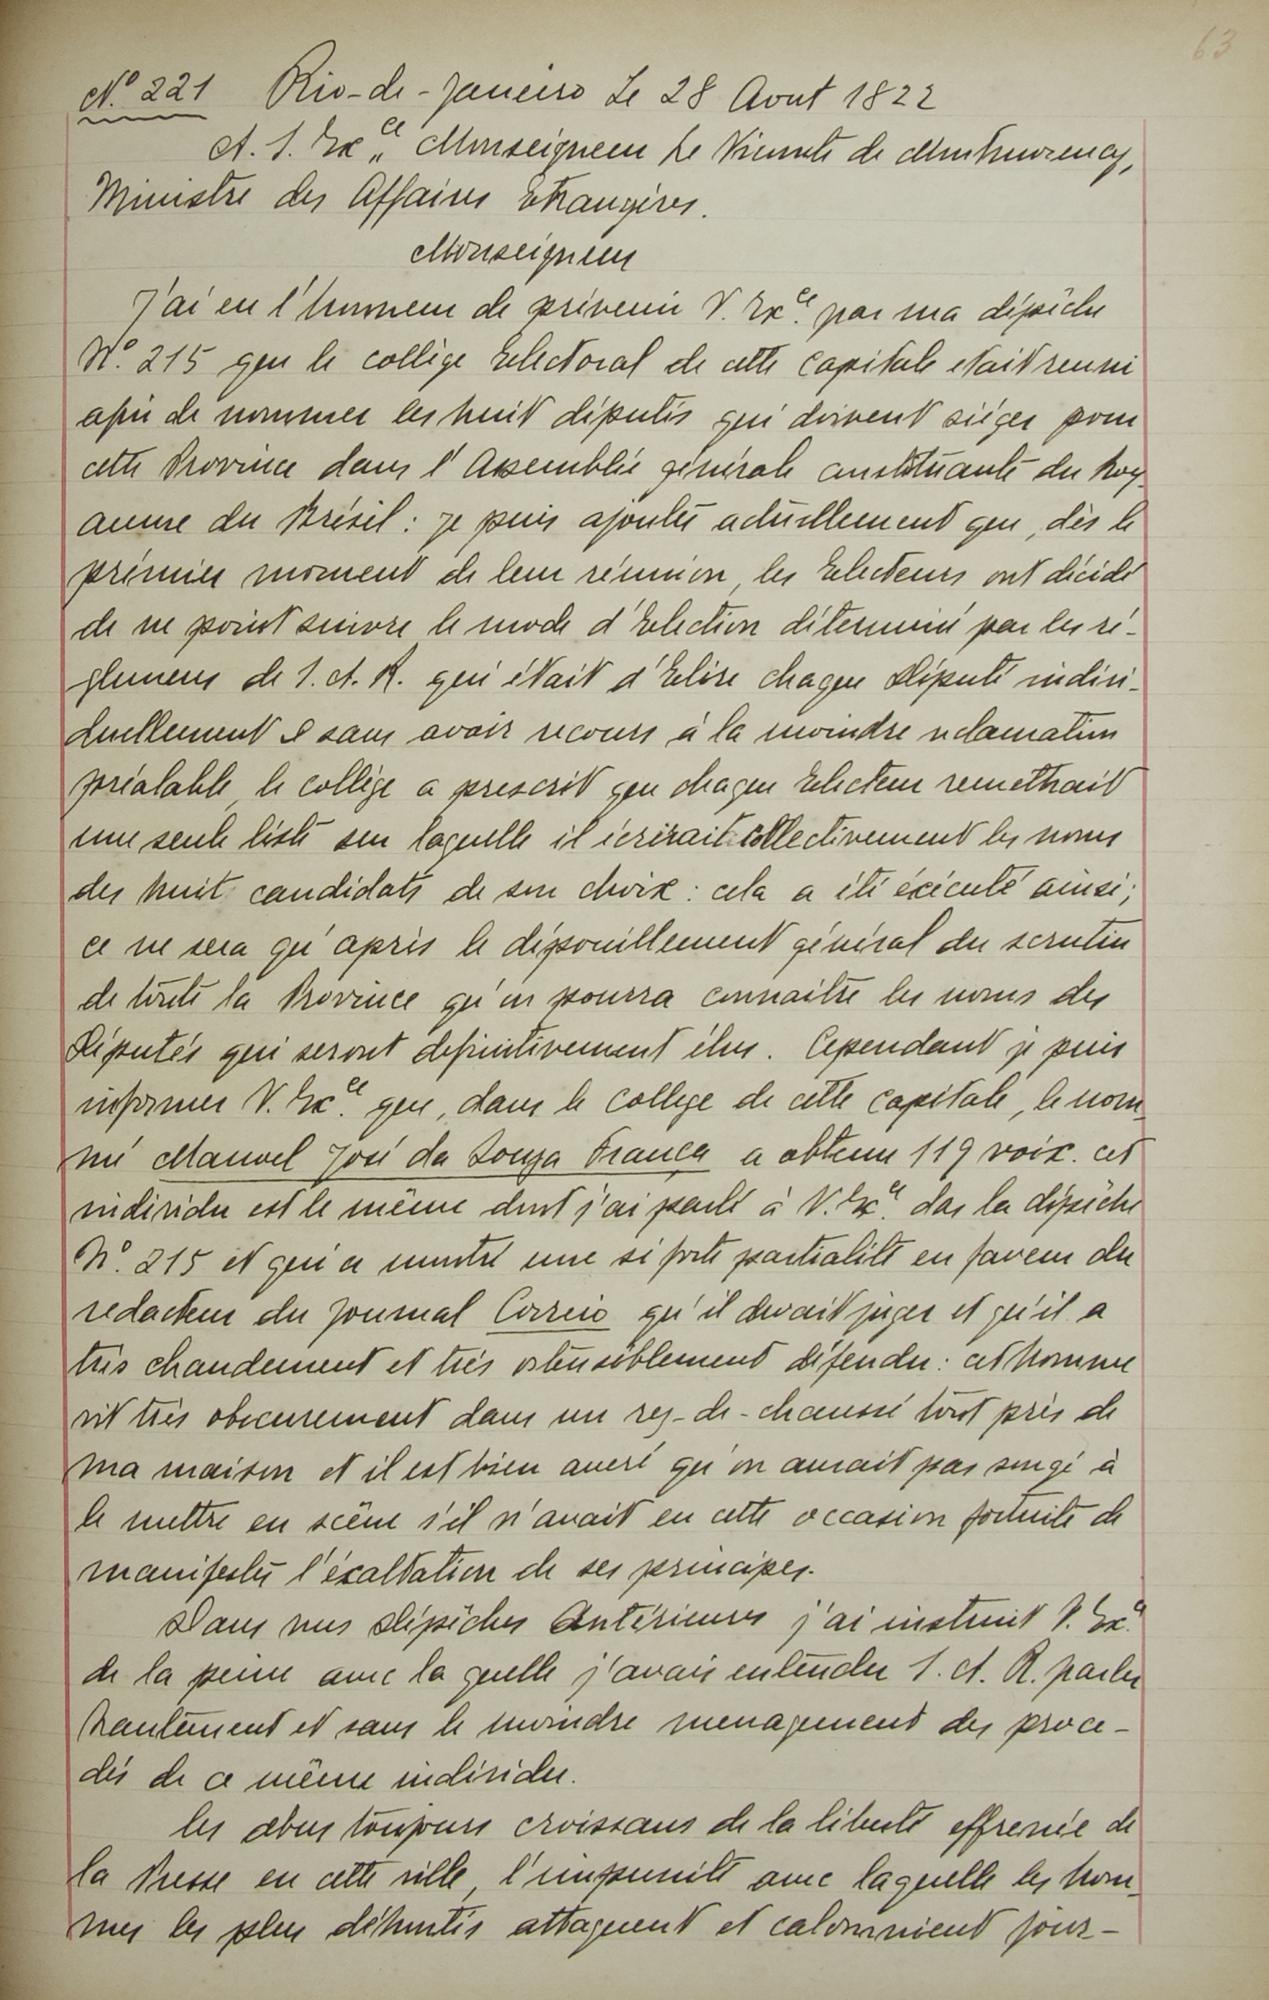 63
N.° 221 Rio-de-Janeiro Le 28 Aout 1822
A. S. Ex.ce Monseigneur Le Vicomte de Montmorency,
Ministre des Affaires Etrangères.
Monseigneur
J'ai eu l'honneur de prévenir V. Ex.ce par ma dépêche
N.° 215 que le collège Electoral de cette capitale etait reuni
afin de nommer les huit députés qui doivent siéger pour
cette Province dans l'Assemblée générale constituante du Roy-
aume du Brésil : je puis ajouter actuellement que, dès le
prémier moment de leur réunion, les Electeurs ont décidé
de ne point suivre le mode d'Election déterminé par les ré-
glemens de S. A. R. qui était d'Elire chaque Député indivi-
duellement & sans avoir recours à la moindre reclamation
préalable, le collége a prescrit que chaque Electeur remettrait
une seule liste sur laquelle il écrirait collectivement les noms
des huit candidats de son choix : cela a été éxécuté ainsi ;
ce ne sera qu'après le dépouillement général du scrutin
de toute la Province qu'on pourra connaitre les noms des
Députés qui seront definitivement élus. Cependant je puis
informer V. Ex.ce que, dans le college de cette capitale, le nom-
mé Manoel José da Souza França a obtenu 119 voix. cet
individu est le même dont j'ai parlé à V. Ex.ce das la dépêche
N.° 215 et qui a montré une si forte partialité en faveur du
redacteur du journal Correio qu'il devait juger et qu'il a
très chaudement et très ostensiblement défendu : cet homme
vit très obscurement dans un rez-de-chaussé tout près de
ma maison et il est bien averé qu'on aurait pas songé à
le mettre en scène s'il n'avait eu cette occasion fortuite de
manifester l'éxaltation de ses principes.
Dans mes Dépêches Antérieures j'ai instruit V. Ex.ce
de la peine avec la quelle j'avais entendu S. A. R. parler
hautement et sans le moindre menagement des proce-
dés de ce même individu.
les abus toujours croissans de la liberté effrenée de
la Presse en cette ville, l'impunité avec laquelle les hom-
mes les plus déhontés attaquent et calomnient jour-